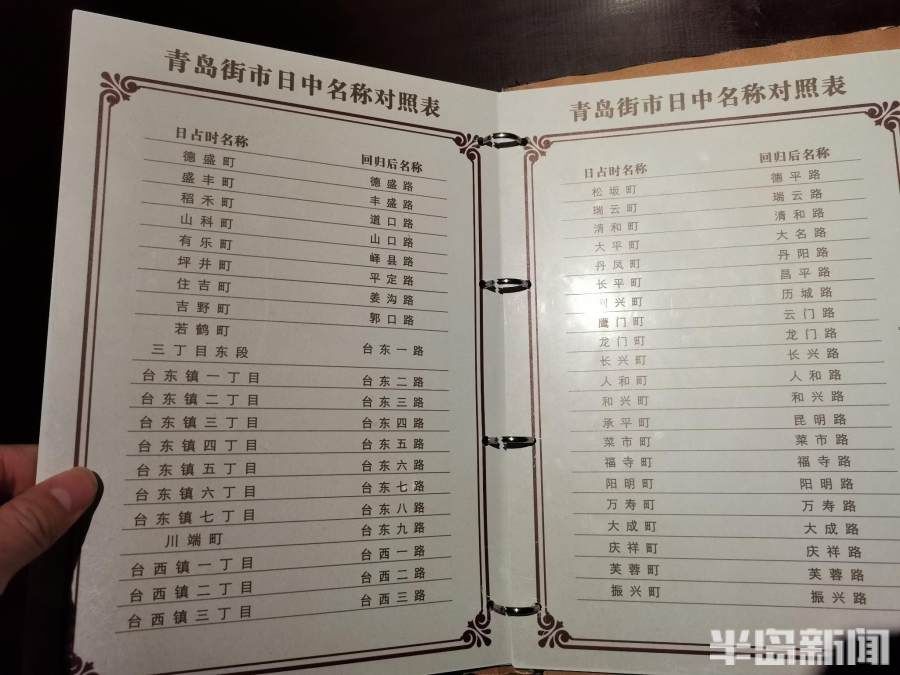 青岛街市日中名称对照表
日占时名称 回归后名称
德盛町 德盛路
盛丰町 丰盛路
稻禾町 道口路
山科町 山口路
有乐町 峄县路
坪井町 平定路
住吉町 姜沟路
吉野町 郭口路
若鹤町
三丁目东段 台东一路
台东镇一丁目 台东二路
台东镇二丁目 台东三路
台东镇三丁目 台东四路
台东镇四丁目 台东五路
台东镇五丁目 台东六路
台东镇六丁目 台东七路
台东镇七丁目 台东八路
川端町 台东九路
台西镇一丁目 台西一路
台西镇二丁目 台西二路
台西镇三丁目 台西三路
青岛街市日中名称对照表
日占时名称 回归后名称
松坂町 德平路
瑞云町 瑞云路
清和町 清和路
大平町 大名路
丹凤町 丹阳路
长平町 昌平路
历城路
鹰门町 云门路
龙门町 龙门路
长兴町 长兴路
人和町 人和路
和兴町 和兴路
承平町 昆明路
菜市町 菜市路
福寺町 福寺路
阳明町 阳明路
万寿町 万寿路
大成町 大成路
庆祥町 庆祥路
芙蓉町 芙蓉路
振兴町 振兴路
半岛新闻